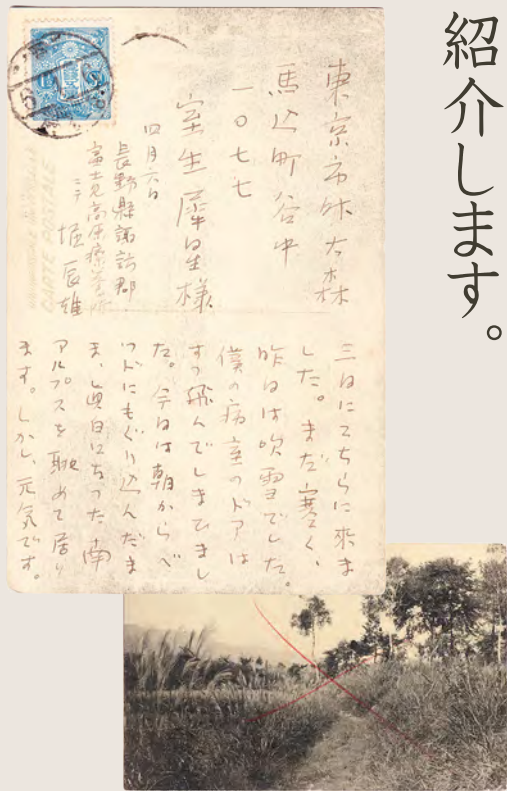 紹介します。
東京市外大森
馬込町谷中
一〇七七
室生犀星様
四月六日
長野縣諏訪郡
富士見高原療養所
ニテ 堀辰雄
CARTE POSTALE
三日にこちらに來ま
した。まだ寒く、
昨日は吹雪でした。
僕の病室のドアは
すつ飛んでしまひまし
た。今日は朝からベ
ツドにもぐり込んだま
ま、眞白になつた南
アルプスを眺めて居り
ます。しかし、元気です。